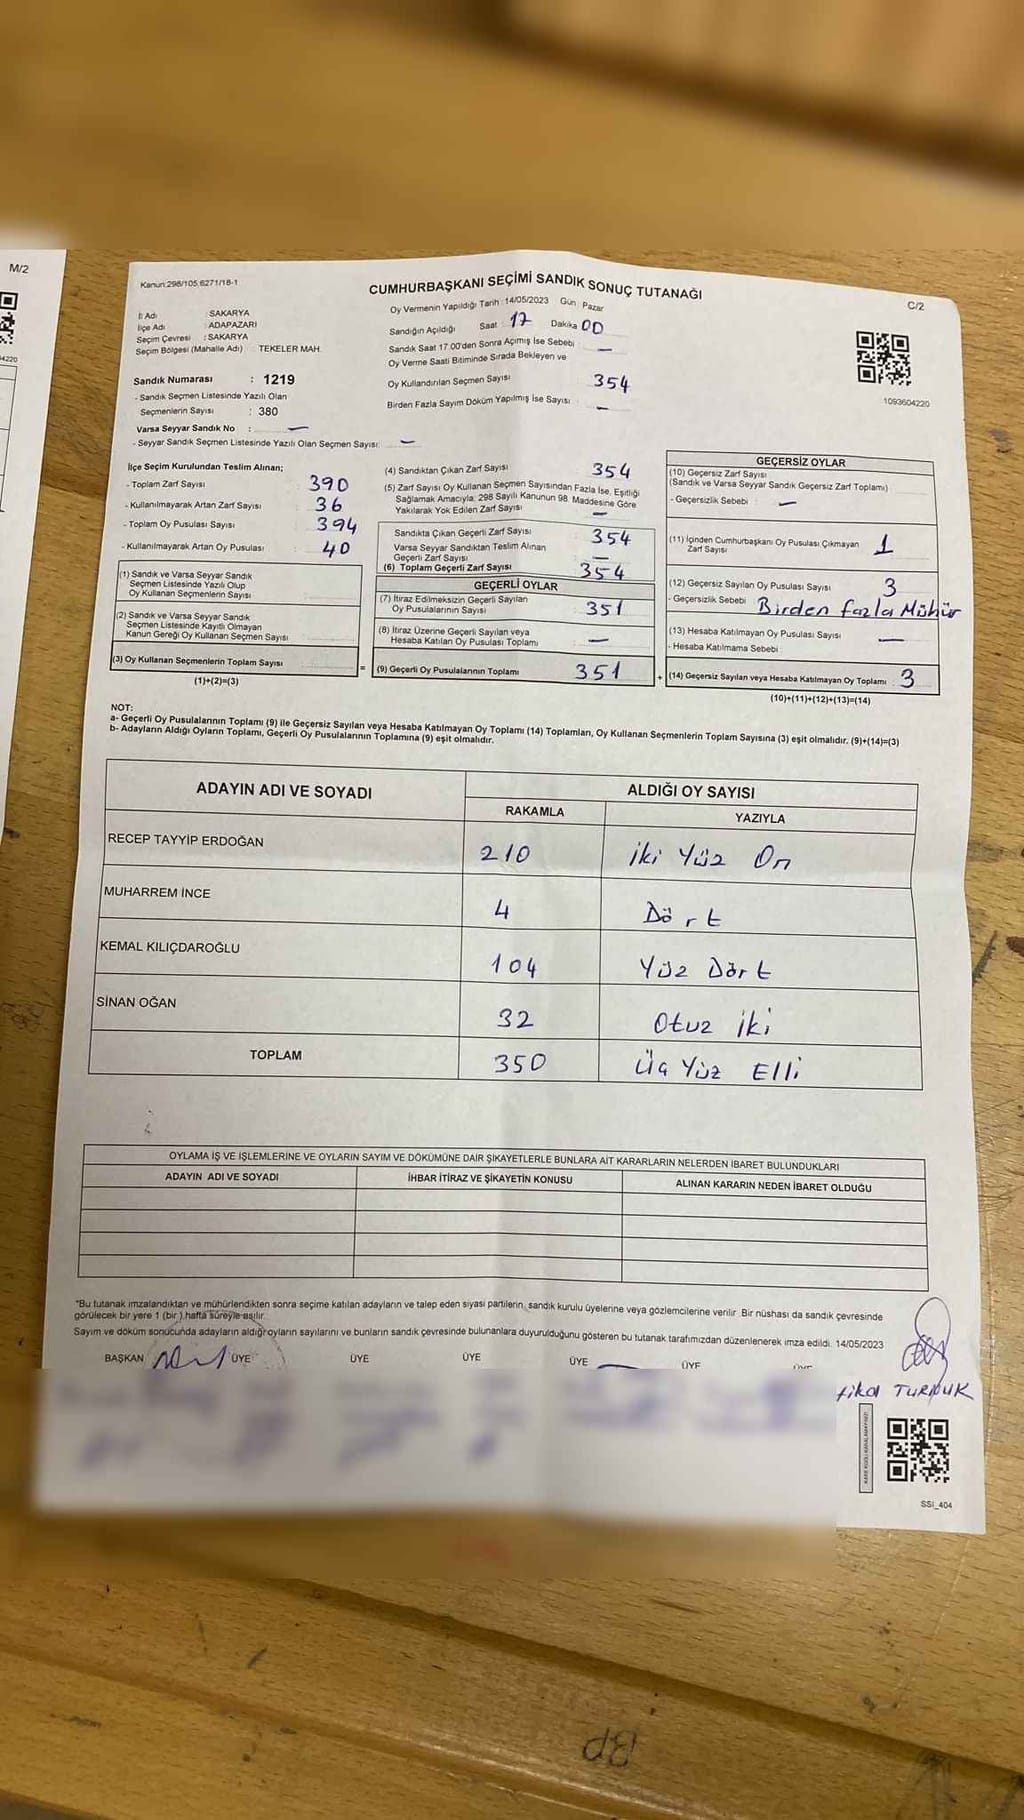 M/2
4220
Kanun:298/105,6271/18-1
CUMHURBAŞKANI SEÇİMİ SANDIK SONUÇ TUTANAĞI
C/2
İl Adı : SAKARYA
İlçe Adı : ADAPAZARI
Seçim Çevresi : SAKARYA
Seçim Bölgesi (Mahalle Adı) TEKELER MAH.
Sandık Numarası : 1219
- Sandık Seçmen Listesinde Yazılı Olan
Seçmenlerin Sayısı : 380
Varsa Seyyar Sandık No : —
- Seyyar Sandık Seçmen Listesinde Yazılı Olan Seçmen Sayısı: —
Oy Vermenin Yapıldığı Tarih : 14/05/2023 Gün : Pazar
Sandığın Açıldığı Saat : 17 Dakika 00
Sandık Saat 17.00'den Sonra Açımış İse Sebebi : —
Oy Verme Saati Bitiminde Sırada Bekleyen ve
Oy Kullandırılan Seçmen Sayısı 354
Birden Fazla Sayım Döküm Yapılmış İse Sayısı : —
1093604220
İlçe Seçim Kurulundan Teslim Alınan;
- Toplam Zarf Sayısı : 390
- Kullanılmayarak Artan Zarf Sayısı : 36
- Toplam Oy Pusulası Sayısı : 394
- Kullanılmayarak Artan Oy Pusulası : 40
(1) Sandık ve Varsa Seyyar Sandık
Seçmen Listesinde Yazılı Olup
Oy Kullanan Seçmenlerin Sayısı
(2) Sandık ve Varsa Seyyar Sandık
Seçmen Listesinde Kayıtlı Olmayan
Kanun Gereği Oy Kullanan Seçmen Sayısı
(3) Oy Kullanan Seçmenlerin Toplam Sayısı
(1)+(2)=(3)
(4) Sandıktan Çıkan Zarf Sayısı 354
(5) Zarf Sayısı Oy Kullanan Seçmen Sayısından Fazla İse, Eşitliği
Sağlamak Amacıyla; 298 Sayılı Kanunun 98. Maddesine Göre
Yakılarak Yok Edilen Zarf Sayısı —
Sandıkta Çıkan Geçerli Zarf Sayısı 354
Varsa Seyyar Sandıktan Teslim Alınan
Geçerli Zarf Sayısı —
(6) Toplam Geçerli Zarf Sayısı 354
GEÇERLİ OYLAR
(7) İtiraz Edilmeksizin Geçerli Sayılan
Oy Pusulalarının Sayısı 351
(8) İtiraz Üzerine Geçerli Sayılan veya
Hesaba Katılan Oy Pusulası Toplamı —
= (9) Geçerli Oy Pusulalarının Toplamı 351 +
GEÇERSİZ OYLAR
(10) Geçersiz Zarf Sayısı
(Sandık ve Varsa Seyyar Sandık Geçersiz Zarf Toplamı)
- Geçersizlik Sebebi : —
(11) İçinden Cumhurbaşkanı Oy Pusulası Çıkmayan
Zarf Sayısı 1
(12) Geçersiz Sayılan Oy Pusulası Sayısı 3
- Geçersizlik Sebebi : Birden fazla Mühür
(13) Hesaba Katılmayan Oy Pusulası Sayısı —
- Hesaba Katılmama Sebebi :
(14) Geçersiz Sayılan veya Hesaba Katılmayan Oy Toplamı : 3
(10)+(11)+(12)+(13)=(14)
NOT:
a- Geçerli Oy Pusulalarının Toplamı (9) ile Geçersiz Sayılan veya Hesaba Katılmayan Oy Toplamı (14) Toplamları, Oy Kullanan Seçmenlerin Toplam Sayısına (3) eşit olmalıdır. (9)+(14)=(3)
b- Adayların Aldığı Oyların Toplamı, Geçerli Oy Pusulalarının Toplamına (9) eşit olmalıdır.
ADAYIN ADI VE SOYADI
ALDIĞI OY SAYISI
RAKAMLA YAZIYLA
RECEP TAYYİP ERDOĞAN 210 İki Yüz On
MUHARREM İNCE 4 Dört
KEMAL KILIÇDAROĞLU 104 Yüz Dört
SİNAN OĞAN 32 Otuz iki
TOPLAM 350 Üç Yüz Elli
OYLAMA İŞ VE İŞLEMLERİNE VE OYLARIN SAYIM VE DÖKÜMÜNE DAİR ŞİKAYETLERLE BUNLARA AİT KARARLARIN NELERDEN İBARET BULUNDUKLARI
ADAYIN ADI VE SOYADI İHBAR İTİRAZ VE ŞİKAYETİN KONUSU ALINAN KARARIN NEDEN İBARET OLDUĞU
*Bu tutanak imzalandıktan ve mühürlendikten sonra seçime katılan adayların ve talep eden siyasi partilerin, sandık kurulu üyelerine veya gözlemcilerine verilir. Bir nüshası da sandık çevresinde
görülecek bir yere 1 (bir ) hafta süreyle asılır.
Sayım ve döküm sonucunda adayların aldığı oyların sayılarını ve bunların sandık çevresinde bulunanlara duyurulduğunu gösteren bu tutanak tarafımızdan düzenlenerek imza edildi. 14/05/2023
BAŞKAN ÜYE ÜYE ÜYE ÜYE ÜYE ÜYE
SSI_404
BP